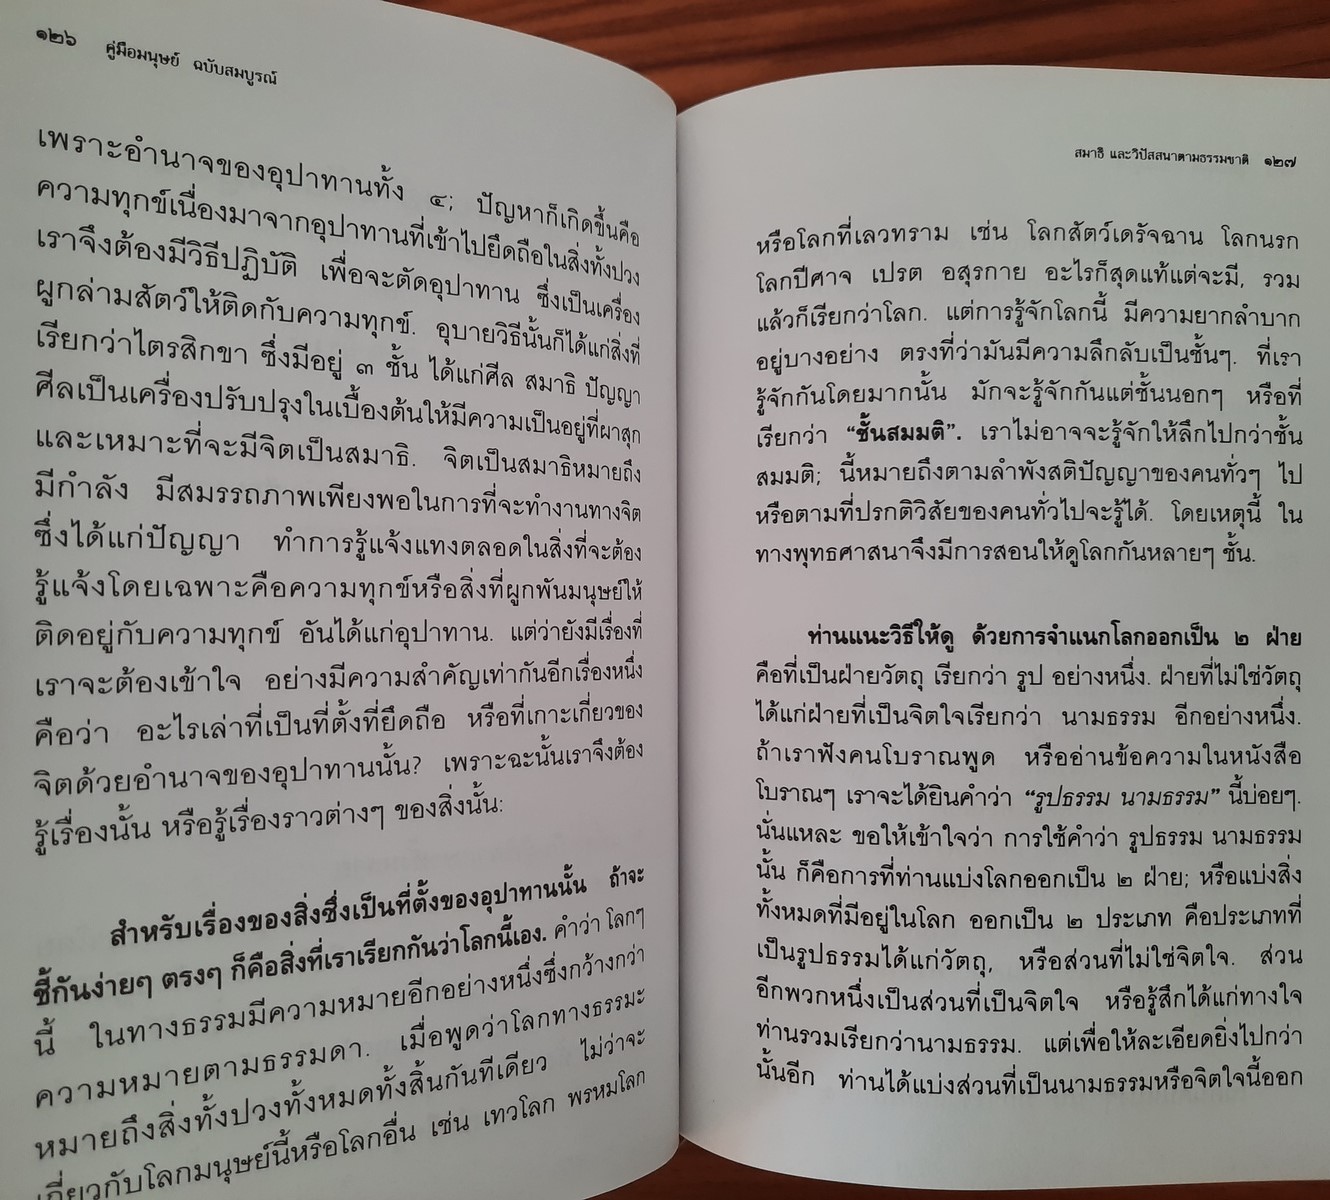 ๑๒๖ คู่มือมนุษย์ ฉบับสมบูรณ์
เพราะอำนาจของอุปาทานทั้ง ๔; ปัญหาก็เกิดขึ้นคือ
ความทุกข์เนื่องมาจากอุปาทานที่เข้าไปยึดถือในสิ่งทั้งปวง
เราจึงต้องมีวิธีปฏิบัติ เพื่อจะตัดอุปาทาน ซึ่งเป็นเครื่อง
ผูกล่ามสัตว์ให้ติดกับความทุกข์. อุบายวิธีนั้นก็ได้แก่สิ่งที่
เรียกว่าไตรสิกขา ซึ่งมีอยู่ ๓ ชั้น ได้แก่ศีล สมาธิ ปัญญา
ศีลเป็นเครื่องปรับปรุงในเบื้องต้นให้มีความเป็นอยู่ที่ผาสุก
และเหมาะที่จะมีจิตเป็นสมาธิ. จิตเป็นสมาธิหมายถึง
มีกำลัง มีสมรรถภาพเพียงพอในการที่จะทำงานทางจิต
ซึ่งได้แก่ปัญญา ทำการรู้แจ้งแทงตลอดในสิ่งที่จะต้อง
รู้แจ้งโดยเฉพาะคือความทุกข์หรือสิ่งที่ผูกพันมนุษย์ให้
ติดอยู่กับความทุกข์ อันได้แก่อุปาทาน. แต่ว่ายังมีเรื่องที่
เราจะต้องเข้าใจ อย่างมีความสำคัญเท่ากันอีกเรื่องหนึ่ง
คือว่า อะไรเล่าที่เป็นที่ตั้งที่ยึดถือ หรือที่เกาะเกี่ยวของ
จิตด้วยอำนาจของอุปาทานนั้น? เพราะฉะนั้นเราจึงต้อง
รู้เรื่องนั้น หรือรู้เรื่องราวต่างๆ ของสิ่งนั้น:
สำหรับเรื่องของสิ่งซึ่งเป็นที่ตั้งของอุปาทานนั้น ถ้าจะ
ชี้กันง่ายๆ ตรงๆ ก็คือสิ่งที่เราเรียกกันว่าโลกนี้เอง. คำว่า โลกๆ
นี้ ในทางธรรมมีความหมายอีกอย่างหนึ่งซึ่งกว้างกว่า
ความหมายตามธรรมดา. เมื่อพูดว่าโลกทางธรรมะ
หมายถึงสิ่งทั้งปวงทั้งหมดทั้งสิ้นกันทีเดียว ไม่ว่าจะ
เกี่ยวกับโลกมนุษย์นี้หรือโลกอื่น เช่น เทวโลก พรหมโลก
สมาธิ และวิปัสสนาตามธรรมชาติ ๑๒๗
หรือโลกที่เลวทราม เช่น โลกสัตว์เดรัจฉาน โลกนรก
โลกปีศาจ เปรต อสุรกาย อะไรก็สุดแท้แต่จะมี, รวม
แล้วก็เรียกว่าโลก. แต่การรู้จักโลกนี้ มีความยากลำบาก
อยู่บางอย่าง ตรงที่ว่ามันมีความลึกลับเป็นชั้นๆ. ที่เรา
รู้จักกันโดยมากนั้น มักจะรู้จักกันแต่ชั้นนอกๆ หรือที่
เรียกว่า “ชั้นสมมติ”. เราไม่อาจจะรู้จักให้ลึกไปกว่าชั้น
สมมติ; นี้หมายถึงตามลำพังสติปัญญาของคนทั่วๆ ไป
หรือตามที่ปรกติวิสัยของคนทั่วไปจะรู้ได้. โดยเหตุนี้ ใน
ทางพุทธศาสนาจึงมีการสอนให้ดูโลกกันหลายๆ ชั้น.
ท่านแนะวิธีให้ดู ด้วยการจำแนกโลกออกเป็น ๒ ฝ่าย
คือที่เป็นฝ่ายวัตถุ เรียกว่า รูป อย่างหนึ่ง. ฝ่ายที่ไม่ใช่วัตถุ
ได้แก่ฝ่ายที่เป็นจิตใจเรียกว่า นามธรรม อีกอย่างหนึ่ง.
ถ้าเราฟังคนโบราณพูด หรืออ่านข้อความในหนังสือ
โบราณๆ เราจะได้ยินคำว่า “รูปธรรม นามธรรม” นี้บ่อยๆ.
นั่นแหละ ขอให้เข้าใจว่า การใช้คำว่า รูปธรรม นามธรรม
นั้น ก็คือการที่ท่านแบ่งโลกออกเป็น ๒ ฝ่าย; หรือแบ่งสิ่ง
ทั้งหมดที่มีอยู่ในโลก ออกเป็น ๒ ประเภท คือประเภทที่
เป็นรูปธรรมได้แก่วัตถุ, หรือส่วนที่ไม่ใช่จิตใจ. ส่วน
อีกพวกหนึ่งเป็นส่วนที่เป็นจิตใจ หรือรู้สึกได้แก่ทางใจ
ท่านรวมเรียกว่านามธรรม. แต่เพื่อให้ละเอียดยิ่งไปกว่า
นั้นอีก ท่านได้แบ่งส่วนที่เป็นนามธรรมหรือจิตใจนี้ออก